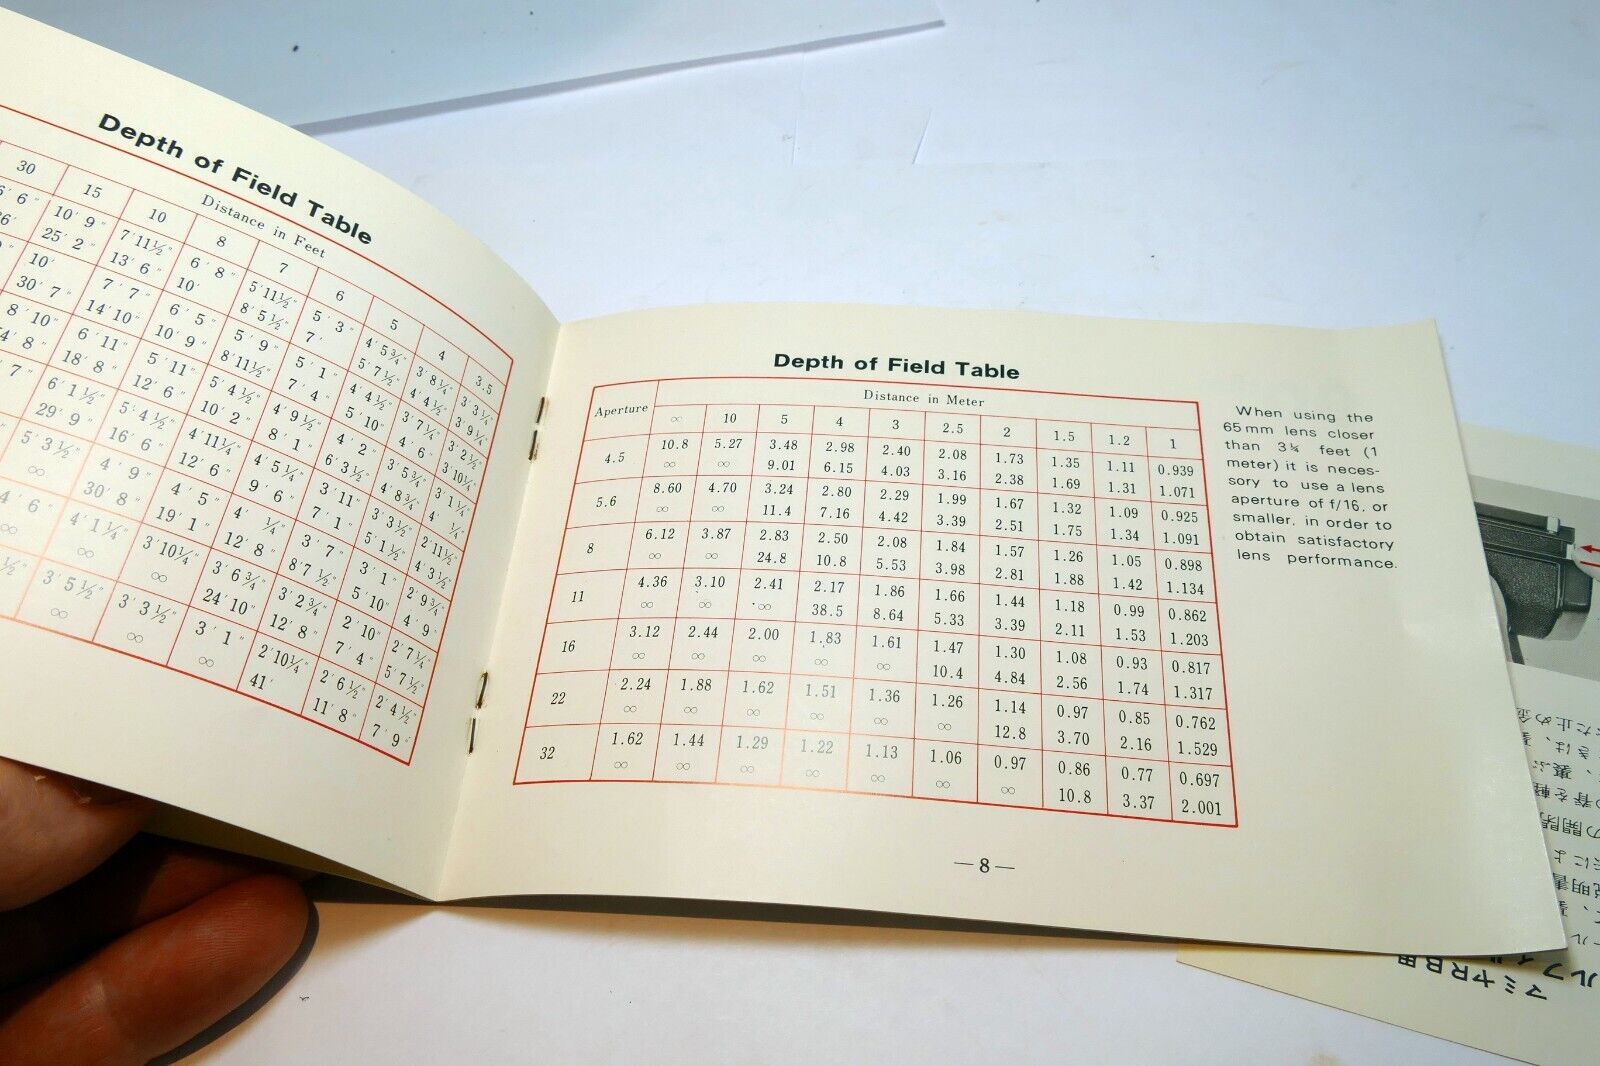 Depth of Field Table
Distance in Feet
30 15 10 8 7 6 5 4 3.5
6' 6" 10' 9" 7'11½" 6' 8" 5'11½" 5' 3" 4' 5¾" 3' 8¼" 3' 3¼"
25' 2" 13' 6" 10' 8' 5½" 7' 5' 7½" 4' 4½" 3' 9¼"
10' 7' 7" 6' 5" 5' 9" 5' 1" 4' 4½" 3' 7¼" 3' 2½"
30' 7" 14'10" 10' 9" 8'11½" 7' 4" 5'10" 4' 6" 3'10¼"
8'10" 6'11" 5'11" 5' 4½" 4' 9½" 4' 2" 3' 5¾" 3' 1¼"
18' 8" 12' 6" 10' 2" 8' 1" 6' 3½" 4' 8¾" 4' ¼"
6' 1½" 5' 4½" 4'11¼" 4' 5¼" 3'11" 3' 3½" 2'11½"
29' 9" 16' 6" 12' 6" 9' 6" 7' 1" 5' 1½" 4' 3½"
5' 3½" 4' 9" 4' 5" 4' ¼" 3' 7" 3' 1" 2' 9¾"
∞ 30' 8" 19' 1" 12' 8" 8'7½" 5'10" 4' 9"
4' 6" 4' 1¼" 3'10¼" 3' 6¾" 3' 2¾" 2'10" 2' 7¼"
∞ ∞ ∞ 24'10" 12' 8" 7' 4" 5' 7½"
3' 5½" 3' 3½" 3' 1" 2'10¼" 2' 6½" 2' 4½"
∞ ∞ ∞ 41' 11' 8" 7' 9"
Depth of Field Table
Aperture Distance in Meter
∞ 10 5 4 3 2.5 2 1.5 1.2 1
4.5 10.8 5.27 3.48 2.98 2.40 2.08 1.73 1.35 1.11 0.939
∞ ∞ 9.01 6.15 4.03 3.16 2.38 1.69 1.31 1.071
5.6 8.60 4.70 3.24 2.80 2.29 1.99 1.67 1.32 1.09 0.925
∞ ∞ 11.4 7.16 4.42 3.39 2.51 1.75 1.34 1.091
8 6.12 3.87 2.83 2.50 2.08 1.84 1.57 1.26 1.05 0.898
∞ ∞ 24.8 10.8 5.53 3.98 2.81 1.88 1.42 1.134
11 4.36 3.10 2.41 2.17 1.86 1.66 1.44 1.18 0.99 0.862
∞ ∞ ∞ 38.5 8.64 5.33 3.39 2.11 1.53 1.203
16 3.12 2.44 2.00 1.83 1.61 1.47 1.30 1.08 0.93 0.817
∞ ∞ ∞ ∞ ∞ 10.4 4.84 2.56 1.74 1.317
22 2.24 1.88 1.62 1.51 1.36 1.26 1.14 0.97 0.85 0.762
∞ ∞ ∞ ∞ ∞ ∞ 12.8 3.70 2.16 1.529
32 1.62 1.44 1.29 1.22 1.13 1.06 0.97 0.86 0.77 0.697
∞ ∞ ∞ ∞ ∞ ∞ ∞ 10.8 3.37 2.001
When using the
65mm lens closer
than 3¼ feet (1
meter) it is neces-
sory to use a lens
aperture of f/16, or
smaller, in order to
obtain satisfactory
lens performance.
—8—
マミヤRB用